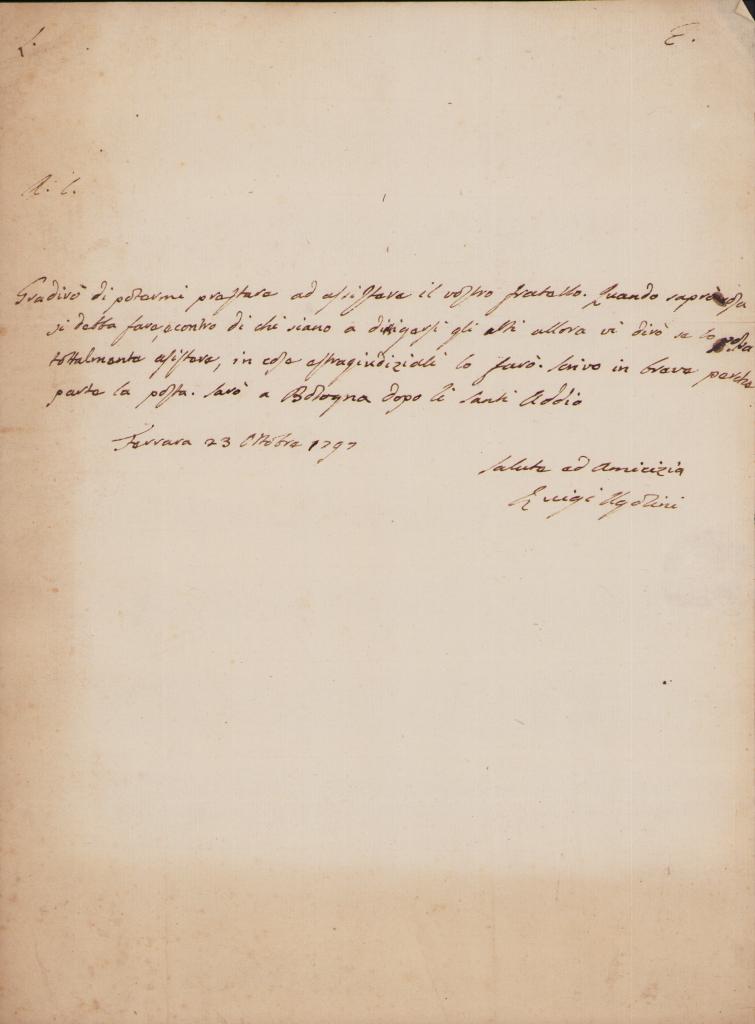 L. E.
A. C.
Gradirò di potermi prestare ad assistere il vostro fratello. Quando saprò cosa
si debba fare, e contro di chi siano a dirigersi gli atti allora vi dirò se lo possa
tottalmente asistere, in cose estragiudiziali lo farò. Scrivo in breve perche
parte la posta. Sarò a Bologna dopo li Santi Addio
Ferrara 23 Ottobre 1797
Salute ed Amicizia
Luigi Ugolini